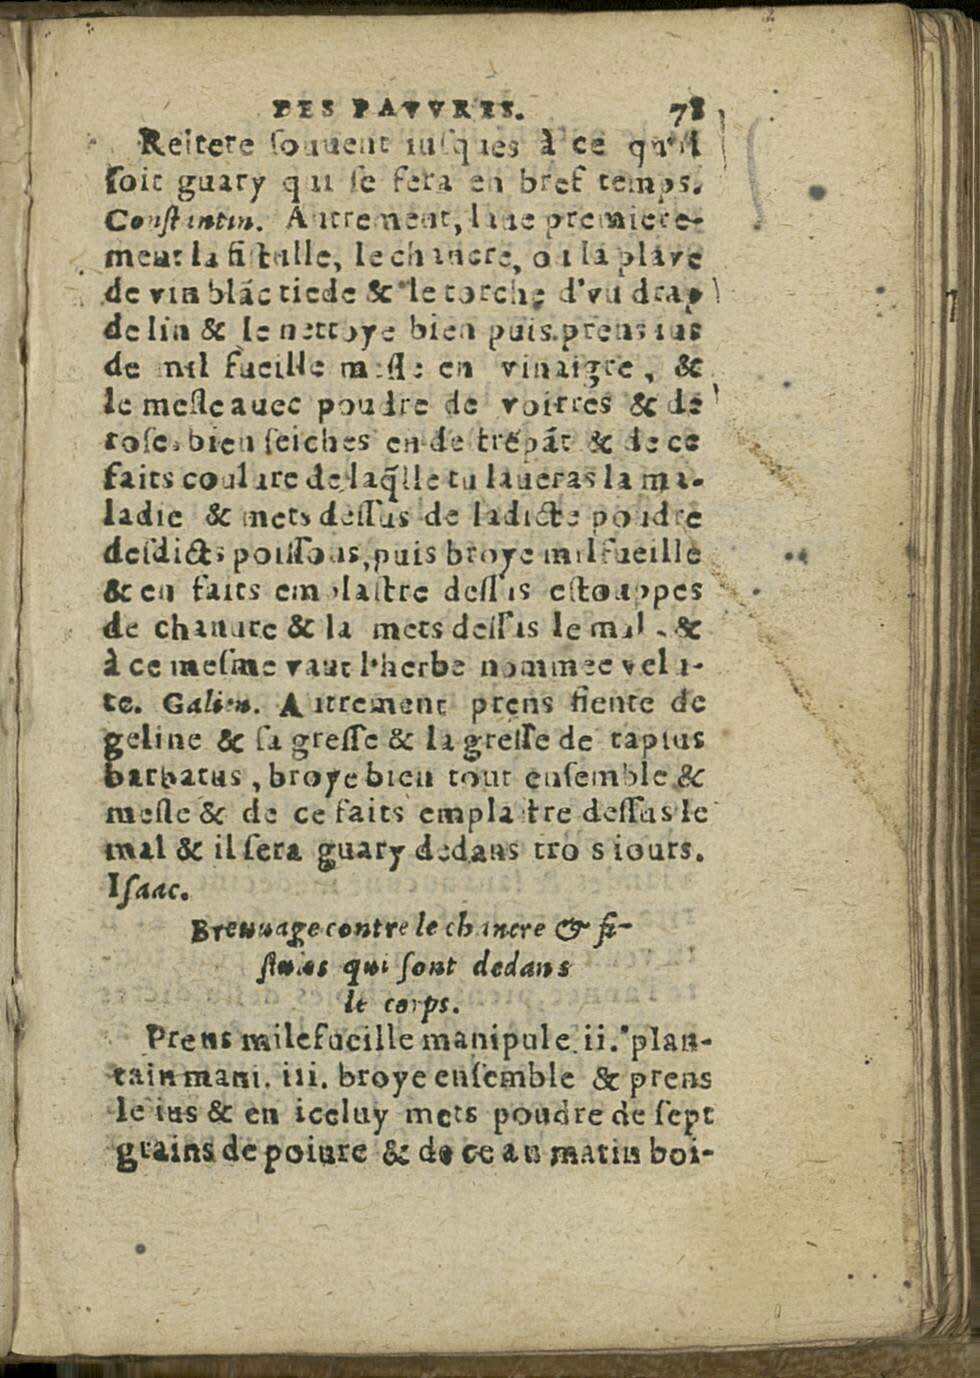 DES PAVVRES. 78
Reïtere ſouuent iuſques à ce qu'il
ſoit guary qui ſe fera en bref temps.
Conſtantin. Autrement, laue premiere-
ment la fiſtulle, le chancre, ou la playe
de vin blãc tiede & le torche d'vn drap
de lin & le nettoye bien puis prens ius
de mil fueille meſlé en vinaigre, &
le meſle auec poudre de voirres & de
roſes bien ſeiches en detrẽpãt & de ce
faits coulure de laq̃lle tu laueras la ma-
ladie & mets deſſus de ladicte poudre
deſdicts pouſſons, puis broye milfueille
& en faits emplaiſtre deſſus eſtouppes
de chanure & la mets deſſus le mal, &
à ce meſme vaut l'herbe nommee velu-
te. Galien. Autrement prens fiente de
geline & ſa greſſe & la greſſe de tapſus
barbatus, broye bien tout enſemble &
meſle & de ce faits emplaſtre deſſus le
mal & il ſera guary dedans trois iours.
Iſaac.
Breuuage contre le chancre & fi-
ſtules qui ſont dedans
le corps.
Prens milefueille manipule. ii. plan-
tain mani. iii. broye enſemble & prens
le ius & en iceluy mets poudre de ſept
grains de poiure & de ce au matin boi-